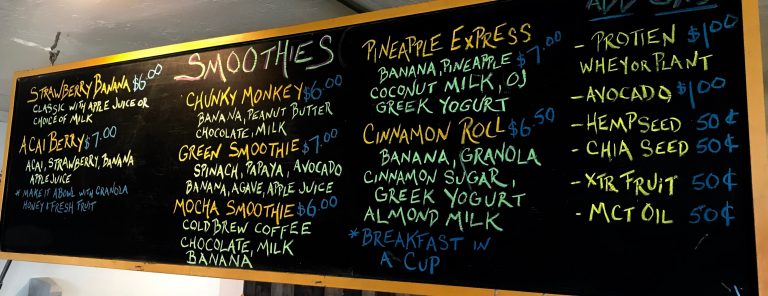 SMOOTHIES
STRAWBERRY BANANA $6.00
CLASSIC WITH APPLE JUICE OR
CHOICE OF MILK
ACAI BERRY $7.00
ACAI, STRAWBERRY, BANANA
APPLE JUICE
* MAKE IT A BOWL WITH GRANOLA
HONEY & FRESH FRUIT
CHUNKY MONKEY $6.00
BANANA, PEANUT BUTTER
CHOCOLATE, MILK
GREEN SMOOTHIE $7.00
SPINACH, PAPAYA, AVOCADO
BANANA, AGAVE, APPLE JUICE
MOCHA SMOOTHIE $6.00
COLD BREW COFFEE
CHOCOLATE, MILK
BANANA
PINEAPPLE EXPRESS $7.00
BANANA, PINEAPPLE
COCONUT MILK, OJ
GREEK YOGURT
CINNAMON ROLL $6.50
BANANA, GRANOLA
CINNAMON SUGAR,
GREEK YOGURT
ALMOND MILK
* BREAKFAST IN
A CUP
ADD ONS
- PROTIEN $1.00
WHEY OR PLANT
- AVOCADO $1.00
- HEMPSEED 50¢
- CHIA SEED 50¢
- XTR FRUIT 50¢
- MCT OIL 50¢